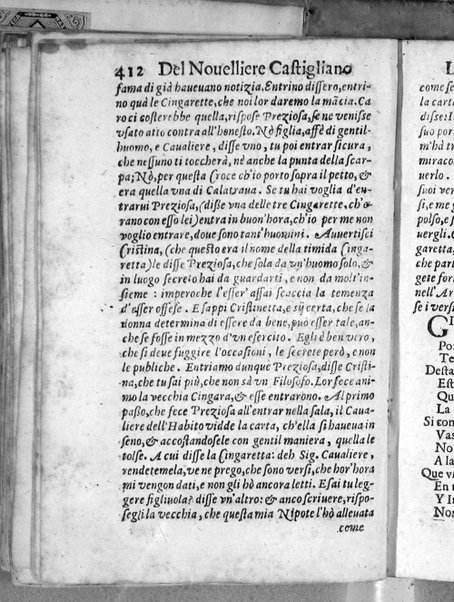 412 Del Nouelliere Castigliano
fama di già haueuano notizia. Entrino dissero, entri-
no quà le Cingarette, che noi lor daremo la mãcia. Ca
ro ci costerebbe quella, rispose Preziosa, se ne venisse
vsato atto contra all'honesto. Nò figlia, affè di gentil
huomo, e Caualiere, disse vno, tu poi entrar sicura,
che nessuno ti toccherà, nè anche la punta della scar-
pa; Nò, per questa (roce ch'io porto sopra il petto, &
era quella vna di Calatraua. Se tu hai voglia d'en-
trarui Preziosa, (disse vna delle tre Cingarette, ch'e-
rano con esso lei) entra in buon'hora, ch'io per me non
voglio entrare, doue sono tant'huomini. Auuertisci
Cristina, (che questo era il nome della timida Cinga-
retta) le disse Preziosa, che sola da vn'huomo solo, &
in luogo secreto hai da guardarti, e non da molt'in-
sieme : imperoche l'esser' assai scaccia la temenza
d'esser offese. E sappi Cristinetta, e sij certa, che se la
donna determina di essere da bene, può esser tale, an-
che se fosse in mezzo d'vn esercito. Egli è ben vero,
che si deue fuggire l'occasioni, le secrete però, e non
le publiche. Entriamo dunque Preziosa, disse Cristi-
na, che tu sai più, che non sà vn Filosofo. Lor fece ani-
mo la vecchia Cingara, & esse entrarono. Al primo
passo, che fece Preziosa all'entrar nella sala, il Caua-
liere dell'Habito vidde la carta, ch'ella si haueua in
seno, & accostandosele con gentil maniera, quella le
tolse. A cui disse la Cingaretta: deh Sig. Caualiere,
rendetemela, ve ne prego, che sono versi, che hor'hora
mi vengon dati, e non gli hò ancora letti. E sai tu leg-
gere figliuola? disse vn'altro: & anco scriuere, rispo-
se gli la vecchia, che questa mia Nipote l'hò alleuata
come